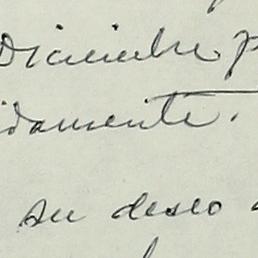 Diciembre p
idamente.
su deseo